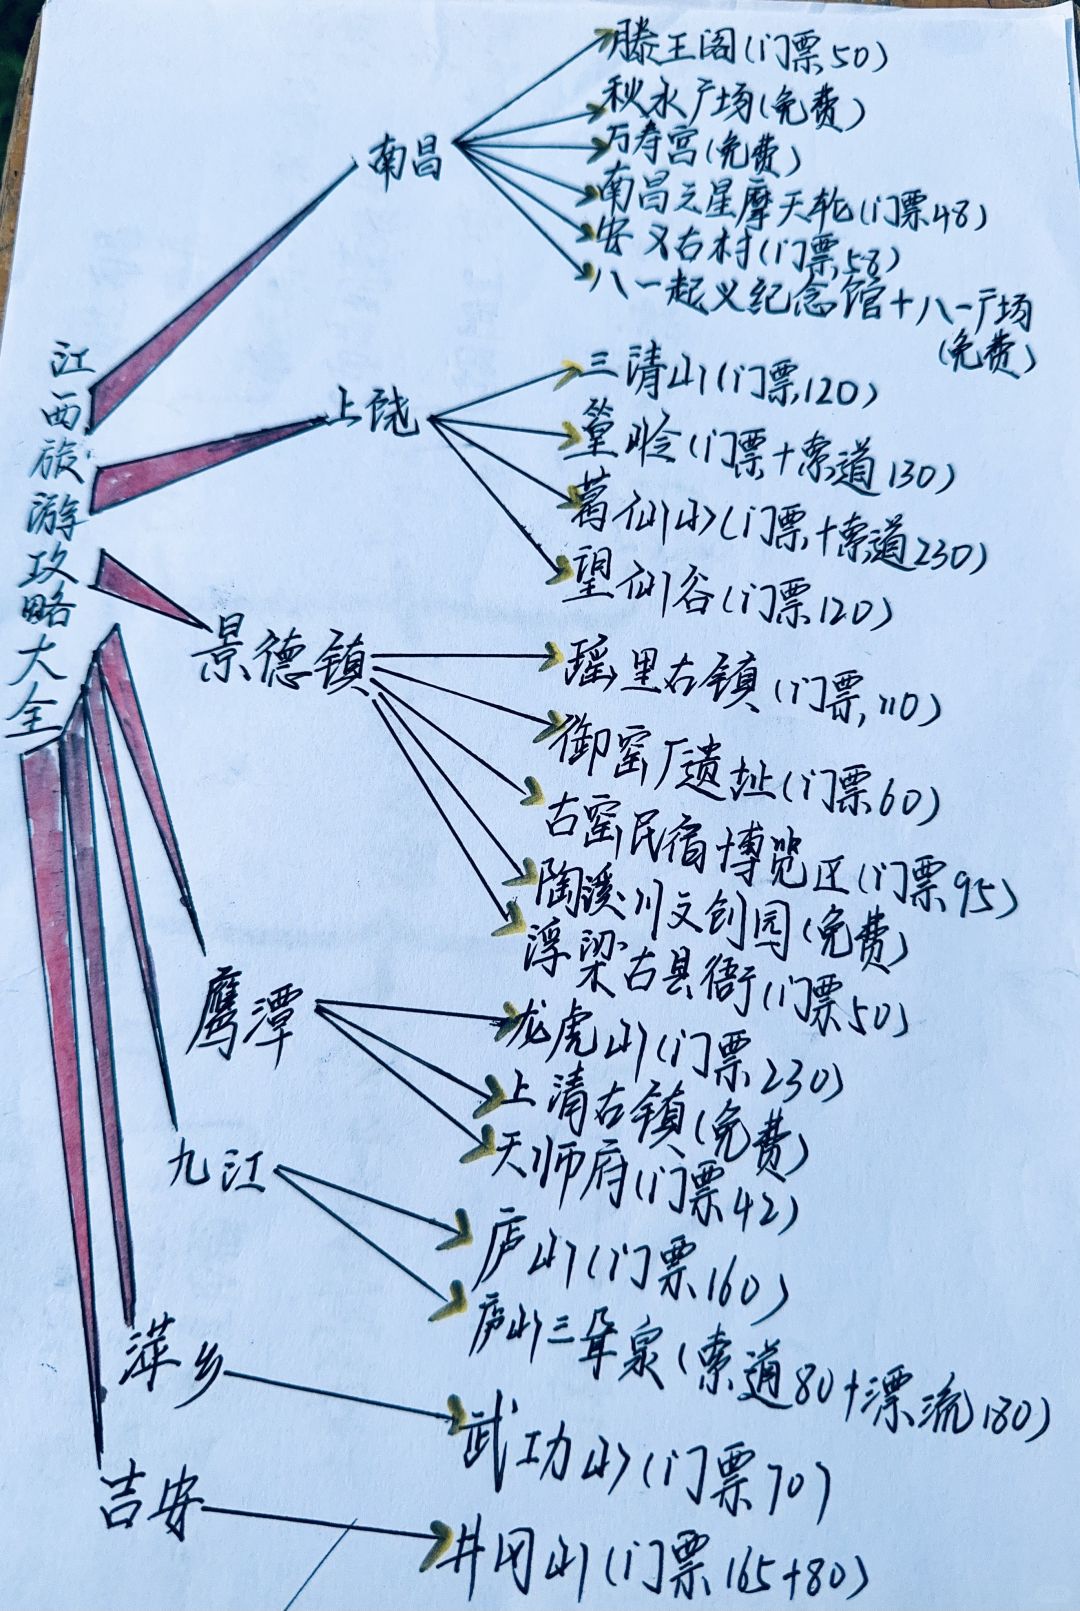 江西旅游攻略大全
南昌
滕王阁(门票50)
秋水广场(免费)
万寿宫(免费)
南昌之星摩天轮(门票48)
安义古村(门票58)
八一起义纪念馆+八一广场
(免费)
上饶
三清山(门票120)
篁岭(门票+索道130)
葛仙山(门票+索道230)
望仙谷(门票120)
景德镇
瑶里古镇(门票110)
御窑厂遗址(门票60)
古窑民宿博览区(门票95)
陶溪川文创园(免费)
浮梁古县衙(门票50)
鹰潭
龙虎山(门票230)
上清古镇(免费)
天师府(门票42)
九江
庐山(门票160)
庐山三叠泉(索道80+漂流180)
萍乡
武功山(门票70)
吉安
井冈山(门票165+80)